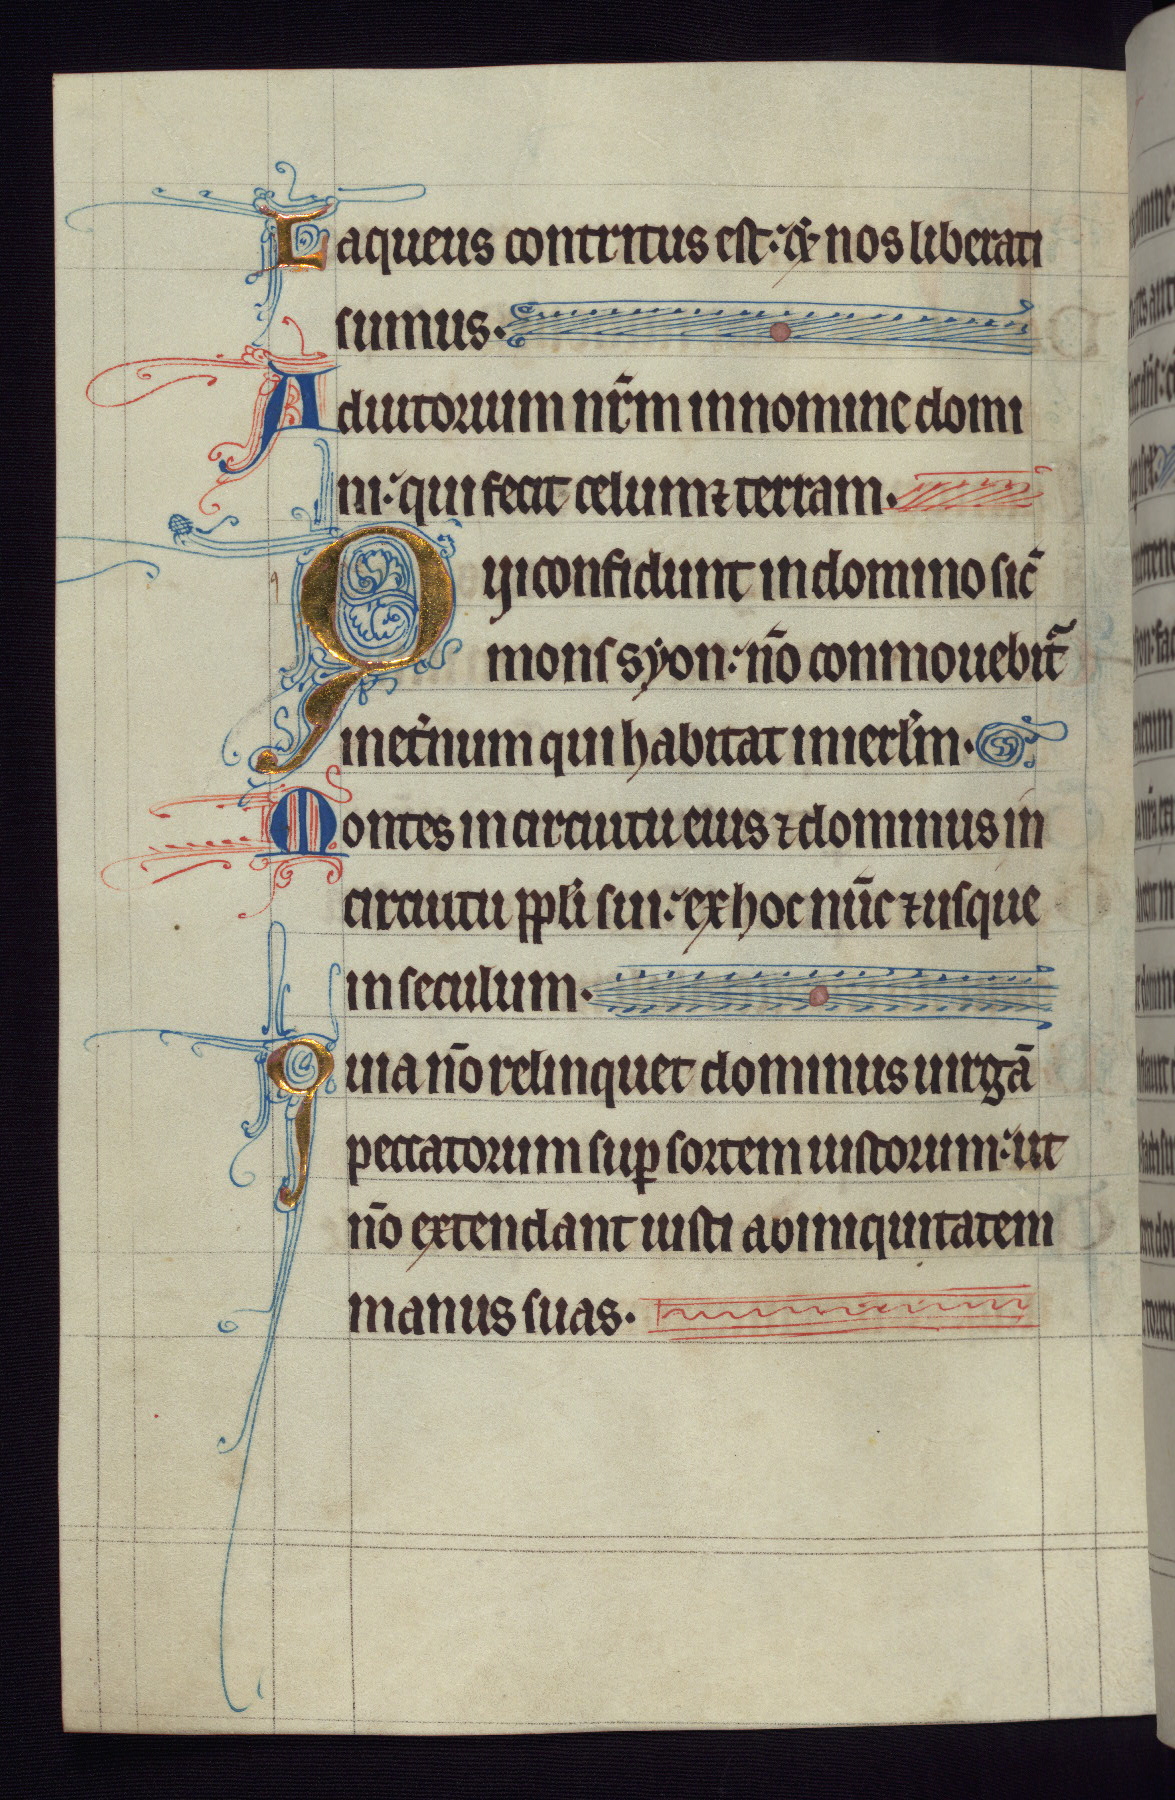 Laqueus contritus est: & nos liberati
sumus.
Adiutorium nr̄m in nomine domi
ni: qui fecit celum ⁊ terram.
Qui confidunt in domino sic̄
mons syon: nō conmouebit᷑
in et̓num qui habitat in ierl̓m.
Montes in circuitu eius ⁊ dominus in
circuitu ppl̓i sui: ex hoc nūc ⁊ usque
in seculum.
Quia nō relinquet dominus uirgā
peccatorum sup̱ sortem iustorum: ut
nō extendant iusti ad iniquitatem
manus suas.